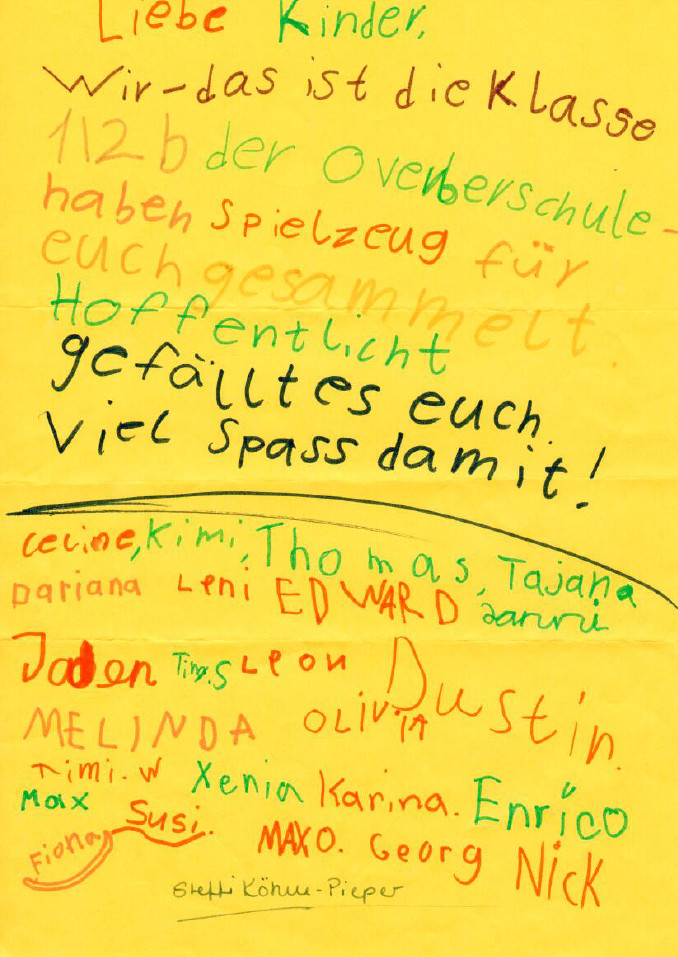 Liebe Kinder,
Wir-das ist die Klasse
1\2b der Overbergschule-
haben Spielzeug für
euch gesammelt.
Hoffentlicht
gefällt es euch.
Viel Spass damit!
celine, Kimi, Thomas, Tajana
Dariana Leni EDWARD Jannri
Jaden Timy.S Leon Dustin.
MELINDA OLIVIA
Timi.W Xenia Karina. Enrico
Max Susi.
Fiona MAX O. Georg Nick
Steffi Köhne-Pieper